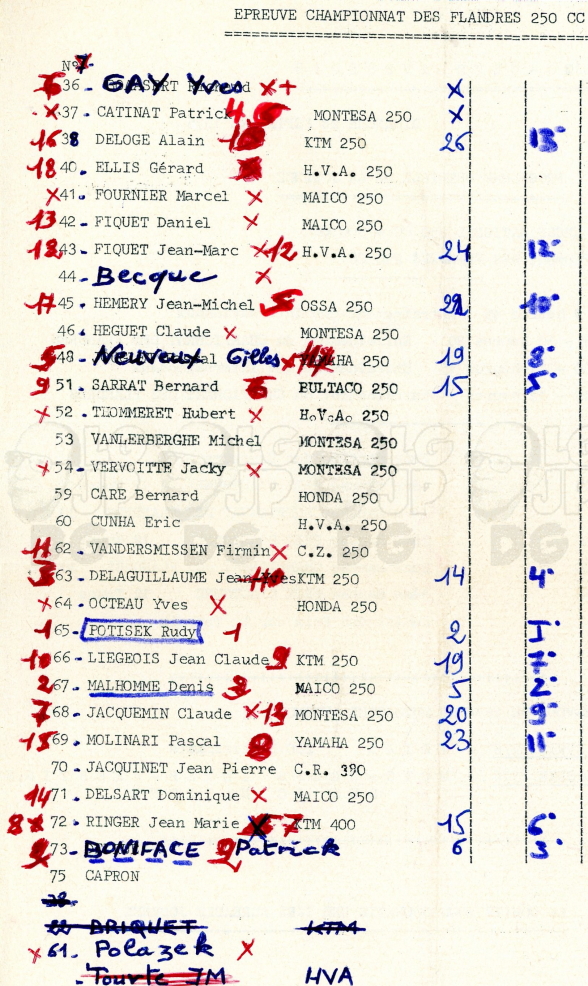 EPREUVE CHAMPIONNAT DES FLANDRES 250 CC
N° 7
6 36 - GAY Yves X +  X
X 37 - CATINAT Patrick 4 MONTESA 250 X
16 38 - DELOGE Alain KTM 250 26 13°
18 40 - ELLIS Gérard H.V.A. 250
X 41 - FOURNIER Marcel X MAICO 250
13 42 - FIQUET Daniel X MAICO 250
43 - FIQUET Jean-Marc X 12 H.V.A. 250 24 12°
44 - Becque X
17 45 - HEMERY Jean-Michel 5 OSSA 250 10°
46 - HEGUET Claude X MONTESA 250
5 48 - Neuveux Gilles YAMAHA 250 19 8°
9 51 - SARRAT Bernard 6 BULTACO 250 15 5°
X 52 - TLOMMERET Hubert X H.V.A. 250
53 VANLERBERGHE Michel MONTESA 250
X 54 - VERVOITTE Jacky X MONTESA 250
59 CARE Bernard HONDA 250
60 CUNHA Eric H.V.A. 250
11 62 - VANDERSMISSEN Firmin X C.Z. 250
3 63 - DELAGUILLAUME Jean-Yves KTM 250 14 4°
X 64 - OCTEAU Yves X HONDA 250
1 65 - POTISEK Rudy 1 2 I°
10 66 - LIEGEOIS Jean Claude 9 KTM 250 19 7°
2 67 - MALHOMME Denis 3 MAICO 250 5 2°
7 68 - JACQUEMIN Claude X 13 MONTESA 250 20 9°
15 69 - MOLINARI Pascal 8 YAMAHA 250 23 11°
70 - JACQUINET Jean Pierre C.R. 390
14 71 - DELSART Dominique X MAICO 250
8 72 - RINGER Jean Marie 7 KTM 400 15 6°
73 - BONIFACE 2 Patrick 6 3°
75 CAPRON
BRIQUET KTM
X 61 - Polazek X
- Tourte JM HVA
LG
JP
DG
LG
JP
DG
LG
JP
DG